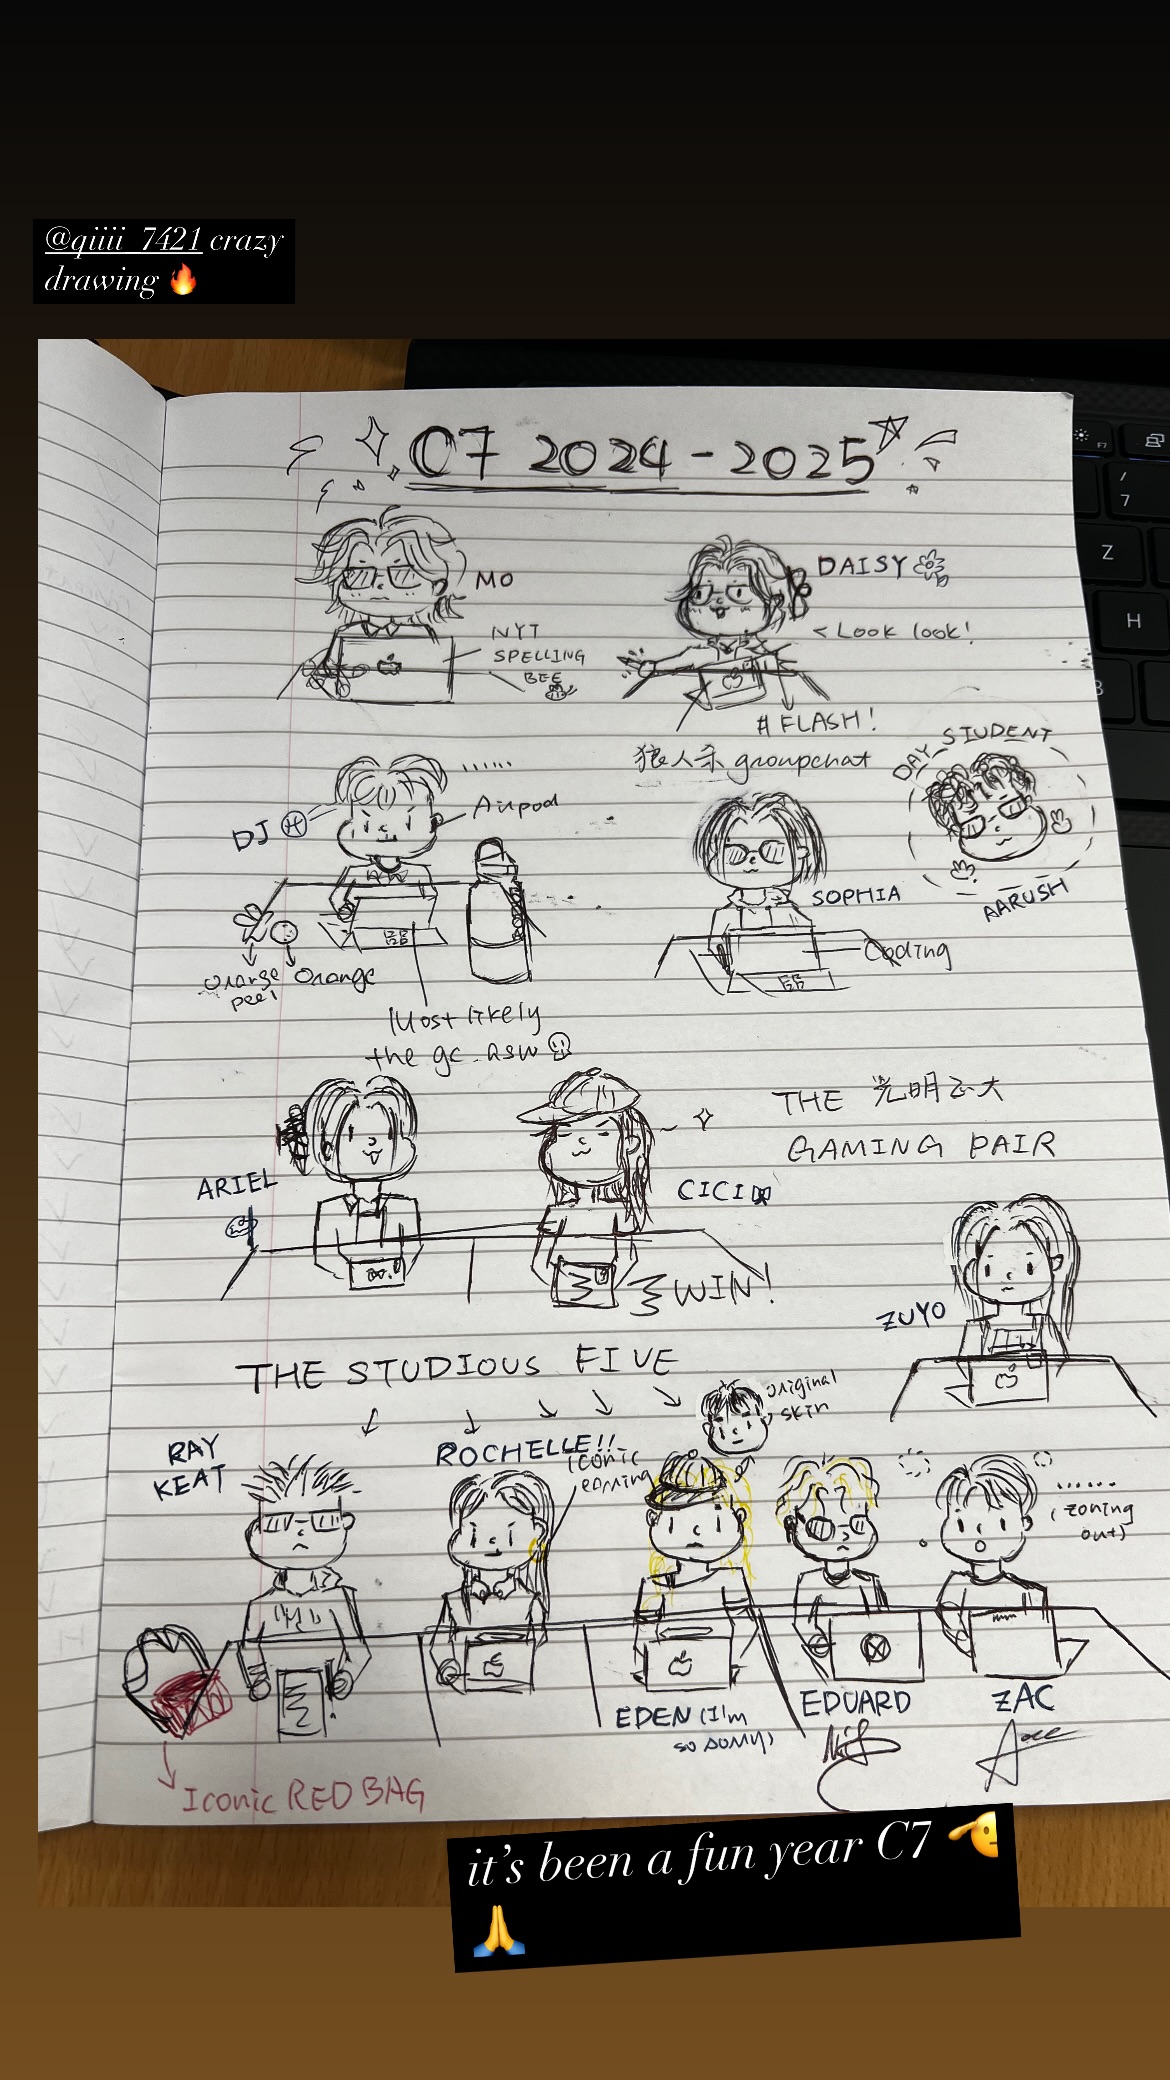 @qiiii_7421 crazy
drawing 🔥
C7 2024-2025
MO
NYT
SPELLING
BEE
DAISY
< Look look!
# FLASH!
狼人杀 groupchat
DAY STUDENT
AARUSH
......
DJ
Airpod
SOPHIA
Coding
orange
peel
Orange
Most likely
the gc. asw
ARIEL
CICI
THE 光明正大
GAMING PAIR
WIN!
ZUYO
THE STUDIOUS FIVE
original
skin
RAY
KEAT
ROCHELLE!!
iconic
earring
......
(zoning
out)
EDEN (I'm
so sorry)
EDUARD
ZAC
Iconic RED BAG
it's been a fun year C7 🫡
🙏
F7
7
Z
H